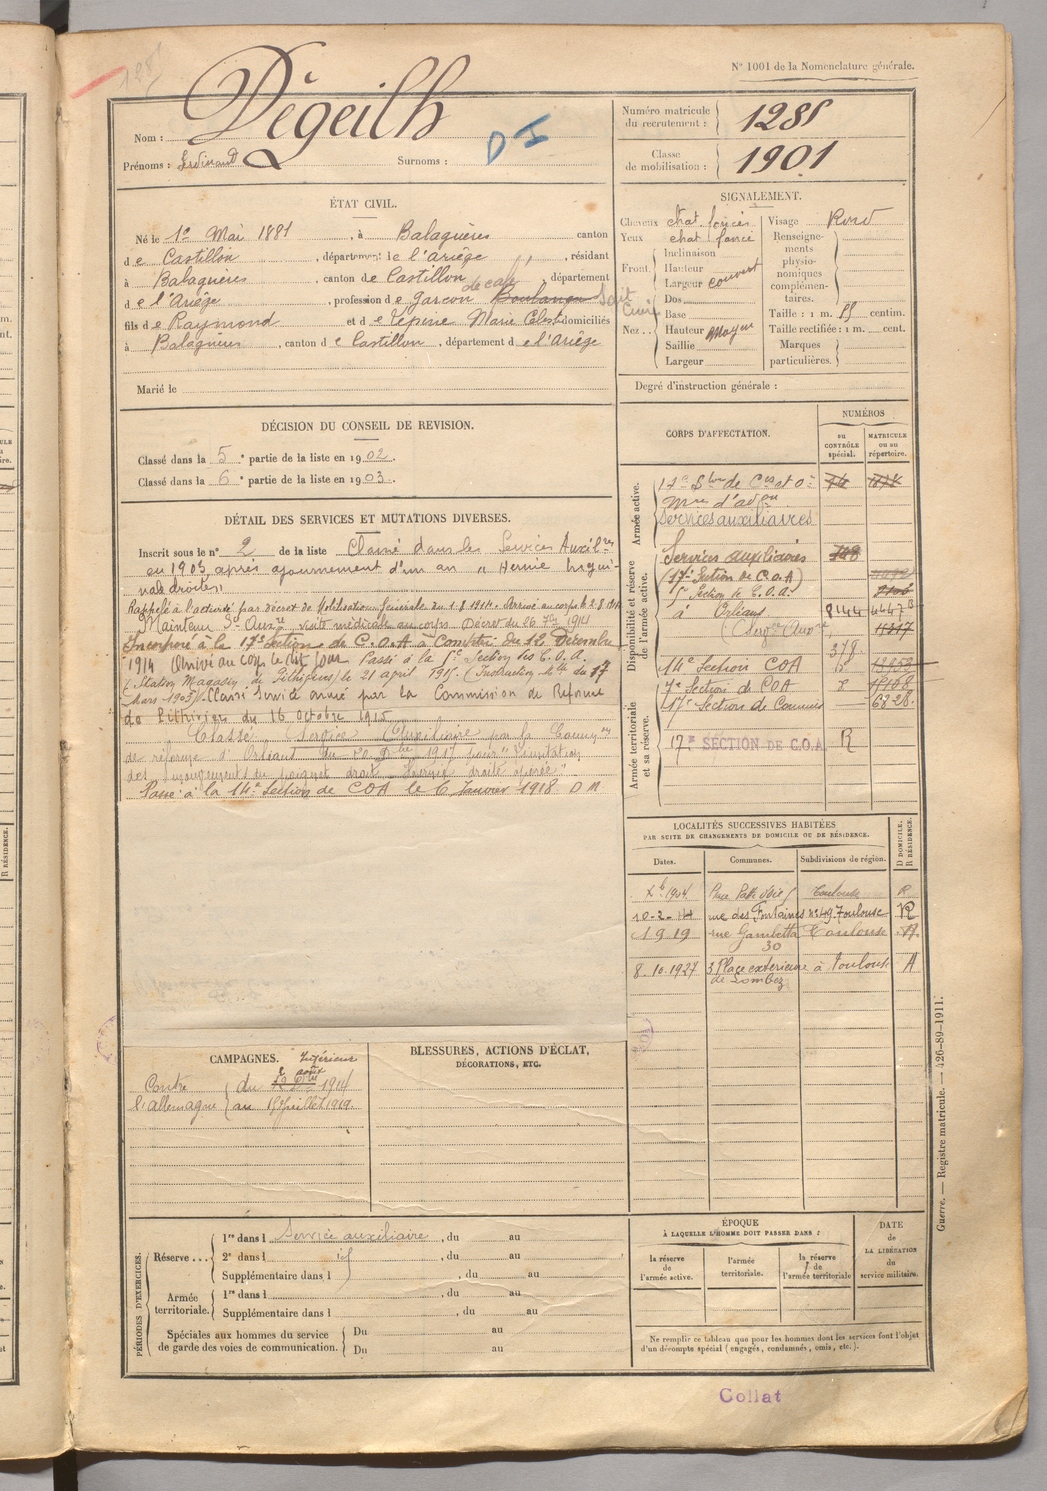 N° 1001 de la Nomenclature générale.
Nom : Dégeilh
Prénoms : Ferdinand Surnoms :
D I
Numéro matricule du recrutement : 1288
Classe de mobilisation : 1901
ÉTAT CIVIL.
Né le 1er Mai 1881, à Balaguères canton
de Castillon, département de l'Ariège, résidant
à Balaguères, canton de Castillon, département
de l'Ariège, profession de garçon de café Boulanger
fils de Raymond et de Lépine Marie Celest. domiciliés
à Balaguères, canton de Castillon, département de l'Ariège
Marié le
SIGNALEMENT.
Cheveux chat. foncés
Yeux chat. foncé
Front : Inclinaison
Hauteur
Largeur couvert
Nez : Dos
Base
Hauteur moyen
Saillie
Largeur
Visage Rond
Renseignements physionomiques complémentaires.
Taille : 1 m. centim.
Taille rectifiée : 1 m. cent.
Marques particulières.
Degré d'instruction générale :
DÉCISION DU CONSEIL DE REVISION.
Classé dans la 5e partie de la liste en 1902.
Classé dans la 6e partie de la liste en 1903.
DÉTAIL DES SERVICES ET MUTATIONS DIVERSES.
Inscrit sous le n° 2 de la liste Classé dans les Services Auxilres
en 1903 après ajournement d'un an "Hernie inguinale droite"
Rappelé à l'activité par décret de Mobilisation Générale du 1-8-1914. Arrivé au corps le 2-8-1914
Maintenu Sce Auxre visite médicale au corps Décret du 26 7bre 1914
Incorporé à la 17e Section de C.O.A à Compter du 12 Décembre
1914 Arrivé au corps le dit jour Passé à la 5e Section des C.O.A.
(Station Magasin de Pithiviers) le 21 avril 1915. (Instruction Mlle du 17
Mars 1905). Classé Service armé par la Commission de Réforme
de Pithiviers du 16 octobre 1915
Classé Service Auxiliaire par la Common
de réforme d'Orléans du 20 Dbre 1917 pour "Limitation
des mouvements du poignet droit. Hernie droite opérée"
Passé à la 14e Section de COA le 6 Janvier 1918 D M
CORPS D'AFFECTATION.
NUMÉROS
AU CONTRÔLE spécial.
MATRICULE ou au répertoire.
Armée active.
17e Son de Cis et Ois
Mres d'adon
Services auxiliaires
Disponibilité et réserve de l'armée active.
Services auxiliaires
(17e Section de C.O.A)
5e Section de C.O.A.
à Orléans 8144
(Servce Auxre)
14e Section COA
7e Section de COA 8
17e Section de Commis 6328.
Armée territoriale et sa réserve.
17e SECTION DE C.O.A. R
LOCALITÉS SUCCESSIVES HABITÉES
PAR SUITE DE CHANGEMENTS DE DOMICILE OU DE RÉSIDENCE.
Dates. Communes. Subdivisions de région. D DOMICILE. R RÉSIDENCE.
Xb 1904 Toulouse R
10-2-14 rue des Fontaines n° 49 Toulouse R
1919 rue Gambetta 30 Toulouse
8.10.1927 3 Place extérieure de Lombez à Toulouse A
CAMPAGNES.
Intérieur
Contre l'allemagne du 2 août 1914
au 15 Juillet 1919
BLESSURES, ACTIONS D'ÉCLAT,
DÉCORATIONS, ETC.
PÉRIODES D'EXERCICES.
Réserve... 1re dans l Service auxiliaire, du au
2e dans l id, du au
Supplémentaire dans l, du au
Armée territoriale. 1re dans l, du au
Supplémentaire dans l, du au
Spéciales aux hommes du service de garde des voies de communication. Du au
Du au
ÉPOQUE
À LAQUELLE L'HOMME DOIT PASSER DANS :
la réserve de l'armée active.
l'armée territoriale.
la réserve de l'armée territoriale
DATE DE LA LIBÉRATION du service militaire.
Ne remplir ce tableau que pour les hommes dont les services font l'objet
d'un décompte spécial (engagés, condamnés, omis, etc.).
Guerre. — Registre matricule. — 426-89-1911.
Collat